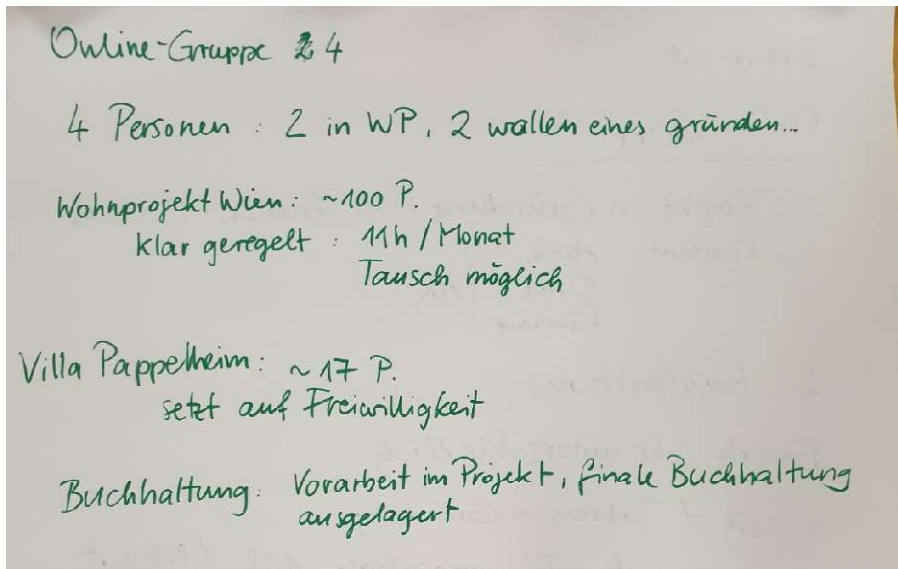 Online-Gruppe 4
4 Personen : 2 in WP, 2 wollen eines gründen...
Wohnprojekt Wien : ~100 P.
klar geregelt : 11h / Monat
Tausch möglich
Villa Pappelheim : ~17 P.
setzt auf Freiwilligkeit
Buchhaltung : Vorarbeit im Projekt, finale Buchhaltung
ausgelagert